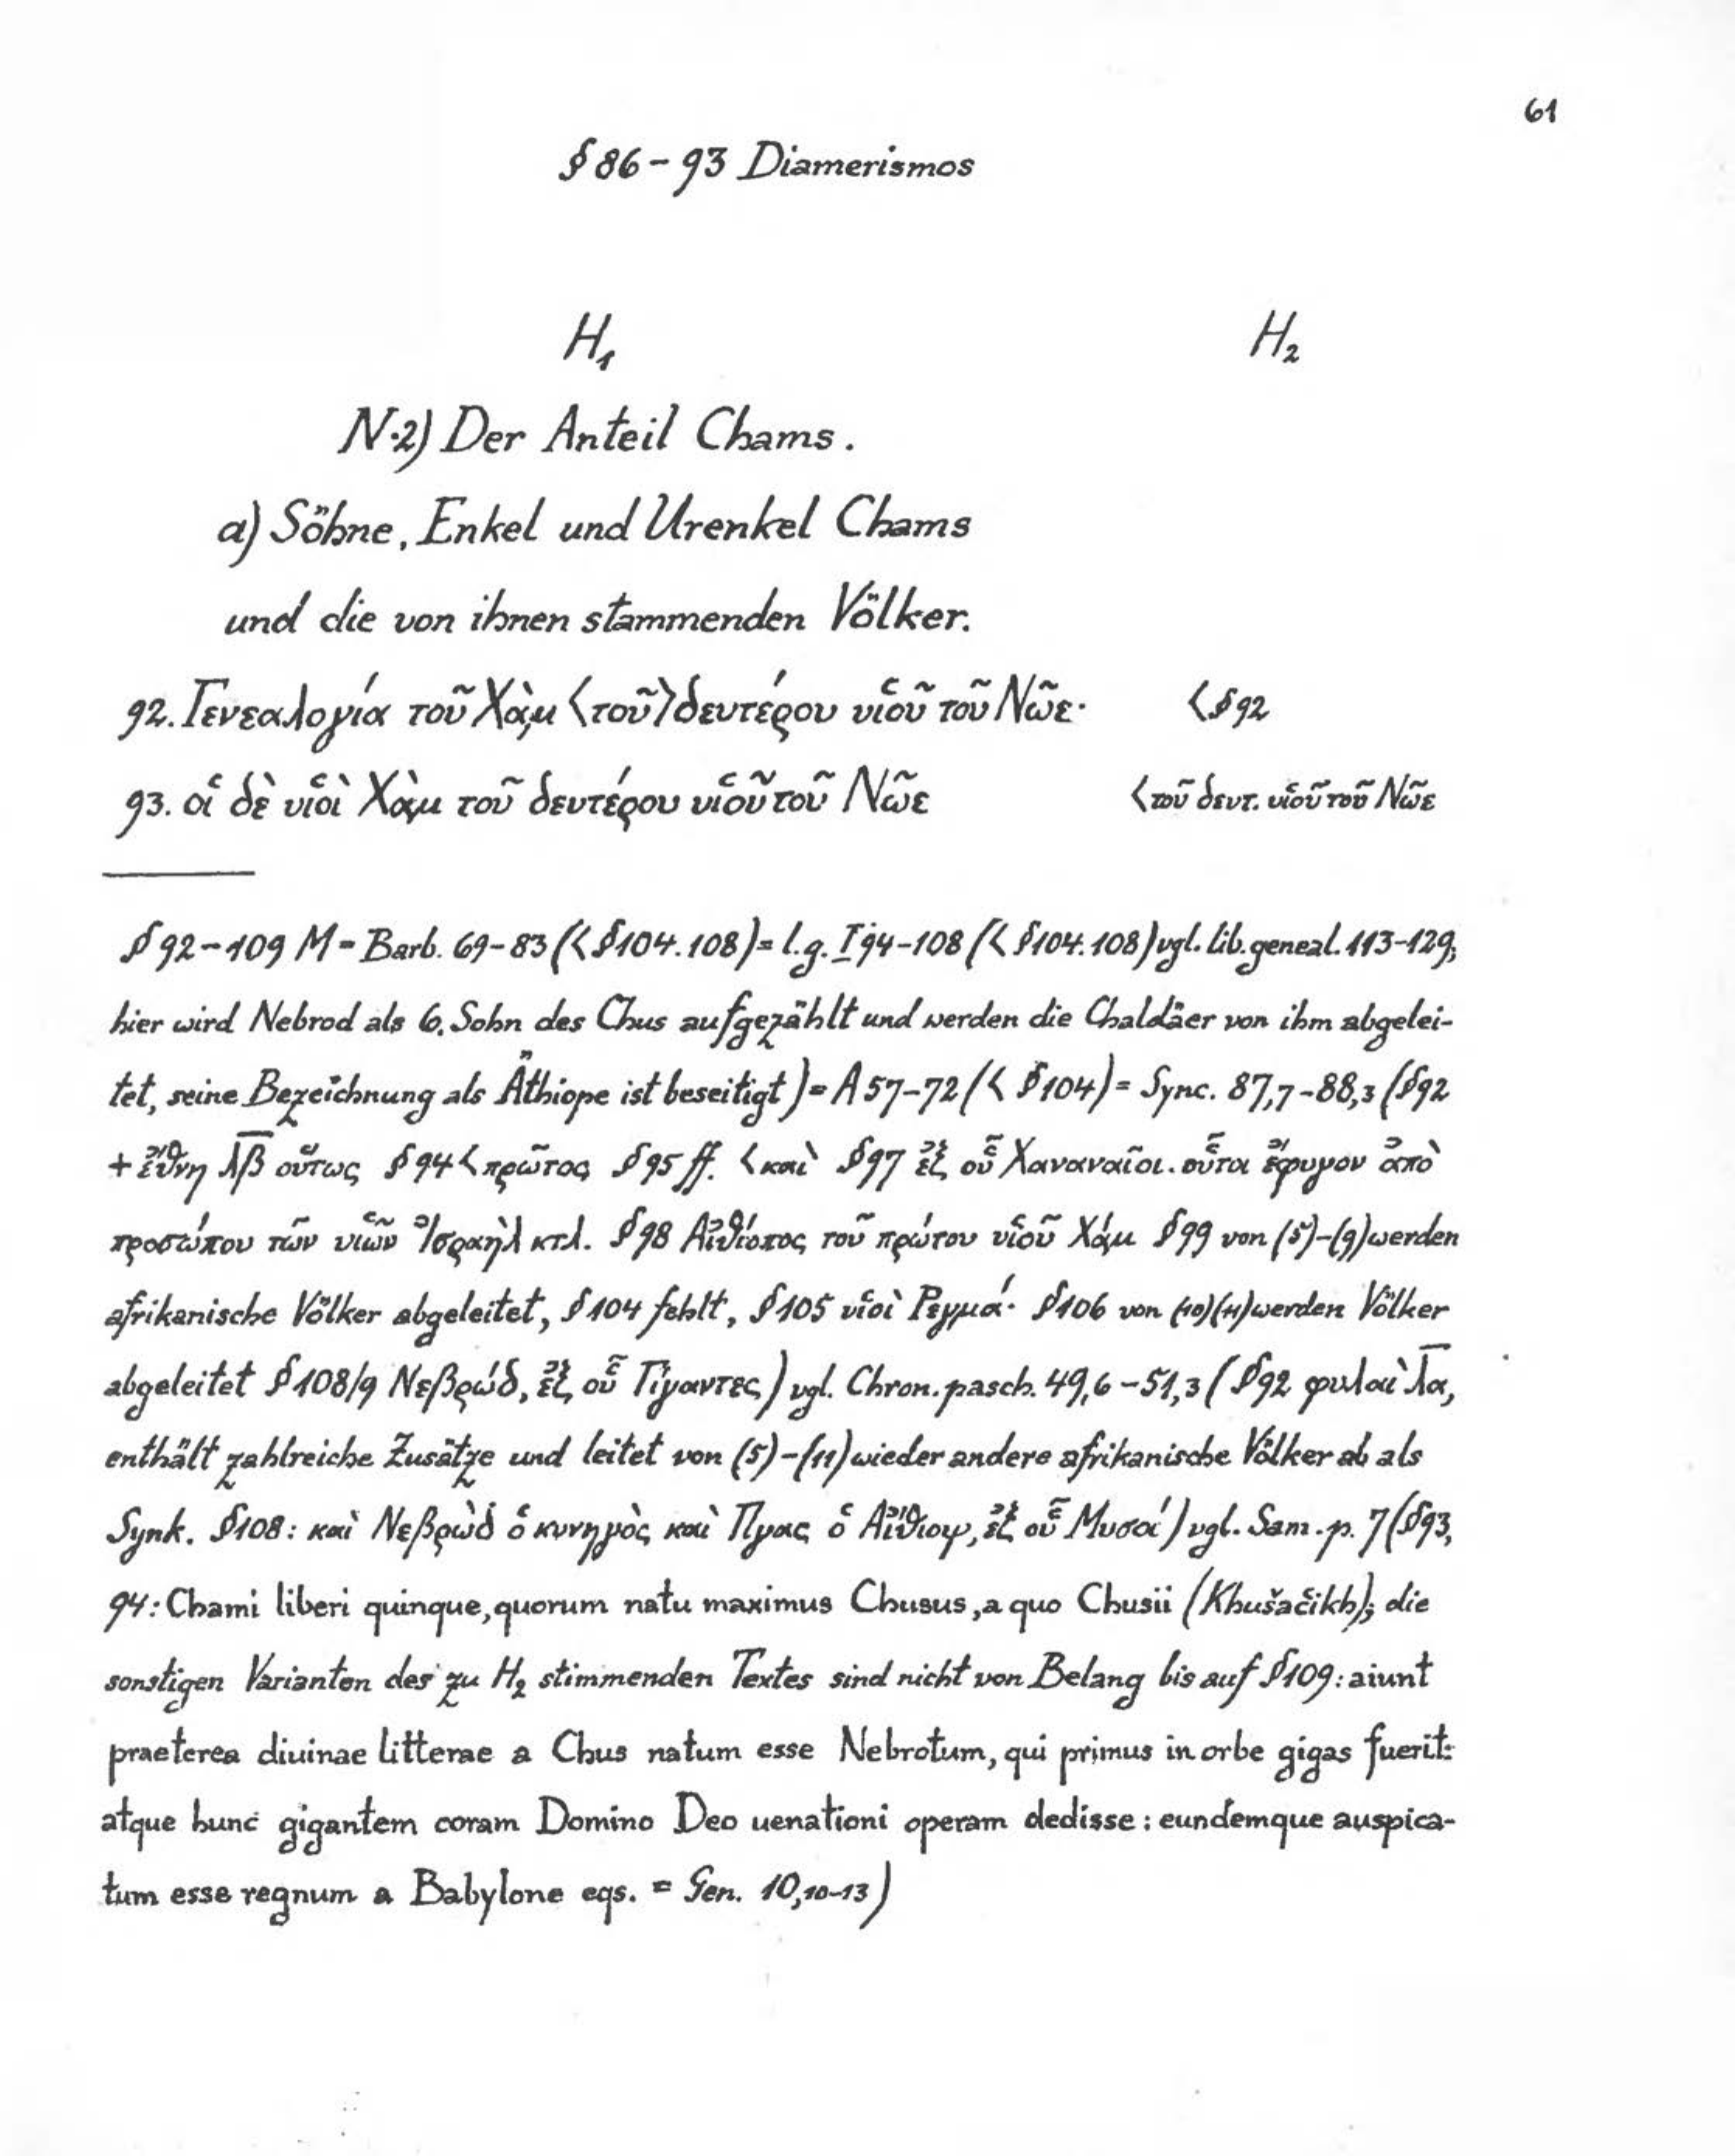 61
§ 86 – 93 Diamerismos
H₁ H₂
N·2) Der Anteil Chams.
a) Söhne, Enkel und Urenkel Chams
und die von ihnen stammenden Völker.
92. Γενεαλογία τοῦ Χὰμ ⟨τοῦ⟩ δευτέρου υἱοῦ τοῦ Νῶε· < § 92
93. οἱ δὲ υἱοὶ Χὰμ τοῦ δευτέρου υἱοῦ τοῦ Νῶε < τοῦ δευτ. υἱοῦ τοῦ Νῶε
§ 92–109 M = Barb. 69–83 (< § 104. 108) = l.g. I 94–108 (< § 104. 108) vgl. lib. geneal. 113–129;
hier wird Nebrod als 6. Sohn des Chus aufgezählt und werden die Chaldäer von ihm abgelei-
tet, seine Bezeichnung als Äthiope ist beseitigt) = A 57–72 (< § 104) = Sync. 87,7–88,3 (§ 92
+ ἔθνη λ̅β̅ οὕτως § 94 < πρῶτος § 95 ff. < καὶ § 97 ἐξ οὗ Χαναναῖοι. οὗτοι ἔφυγον ἀπὸ
προσώπου τῶν υἱῶν Ἰσραὴλ κτλ. § 98 Αἰθίοπος τοῦ πρώτου υἱοῦ Χάμ § 99 von (5)–(9) werden
afrikanische Völker abgeleitet, § 104 fehlt, § 105 υἱοὶ Ρεγμά· § 106 von (10) (11) werden Völker
abgeleitet § 108/9 Νεβρώδ, ἐξ οὗ Γίγαντες) vgl. Chron. pasch. 49,6–51,3 (§ 92 φυλαὶ λ̅α̅,
enthält zahlreiche Zusätze und leitet von (5)–(11) wieder andere afrikanische Völker ab als
Synk. § 108: καὶ Νεβρὼδ ὁ κυνηγὸς καὶ Πγας ὁ Αἰθίοψ, ἐξ οὗ Μυσοί) vgl. Sam. p. 7 (§ 93,
94: Chami liberi quinque, quorum natu maximus Chusus, a quo Chusii (Khušačikh); die
sonstigen Varianten des zu H₂ stimmenden Textes sind nicht von Belang bis auf § 109: aiunt
praeterea diuinae litterae a Chus natum esse Nebrotum, qui primus in orbe gigas fuerit:
atque hunc gigantem coram Domino Deo uenationi operam dedisse: eundemque auspica-
tum esse regnum a Babylone eqs. = Gen. 10,10–13)